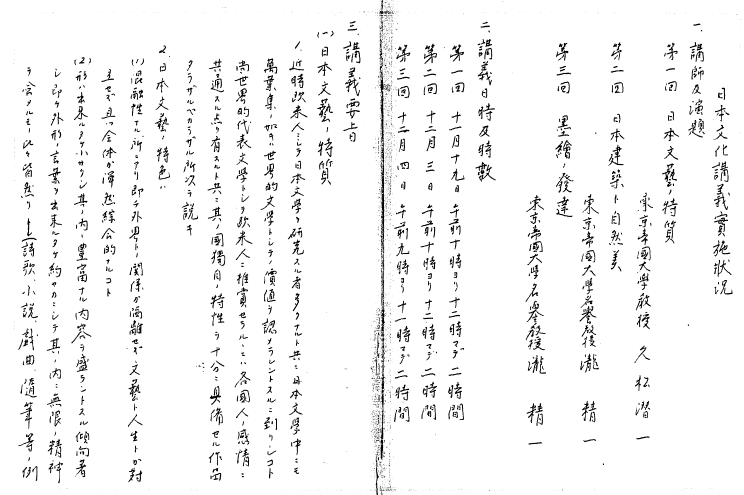 日本文化講義實施狀況
一、講師及演題
第一回 日本文藝ノ特質
東京帝國大學教授 久松潛一
第二回 日本建築ト自然美
東京帝國大學名譽教授 瀧精一
第三回 墨繪ノ發達
東京帝國大學名譽教授 瀧精一
二、講義日時及時數
第一回 十一月十九日 午前十時ヨリ十二時マデ 二時間
第二回 十二月三日 午前十時ヨリ十二時マデ 二時間
第三回 十二月四日 午前九時ヨリ十一時マデ 二時間
三、講義要旨
(一)日本文藝ノ特質
1、近時欧米人ニシテ日本文學ヲ研究スル者多クアルト共ニ日本文學中ニモ
萬葉集ノ如キハ世界的文學トシテノ價値ヲ認メラレントスルニ到リシコト
尚世界的代表文學トシテ欧米人ニ推賞セラルヽニハ各國人ノ感情ニ
共通スル点ヲ有スルト共ニ其ノ國獨自ノ特性ヲ十分ニ具備セル作品
タラザルベカラザル所次ヲ説キ
2、日本文藝ノ特色ハ
(1)混融性ナル所ニアリ即チ外界トノ關係ガ隔離セズ文藝ト人生トガ對
立セズ且ツ全体ガ渾然綜合的ナルコト
(2)形ハ出来ルダケ小サクシ其ノ内ニ豊富ナル内容ヲ盛ラントスル傾向著
シ即チ外形ノ言葉ヲ出来ルダケ約ヤカニシテ其ノ内ニ無限ノ精神
ヲ含メルモノ此々皆然リトシ詩歌、小説、戯曲、隨筆等ノ例